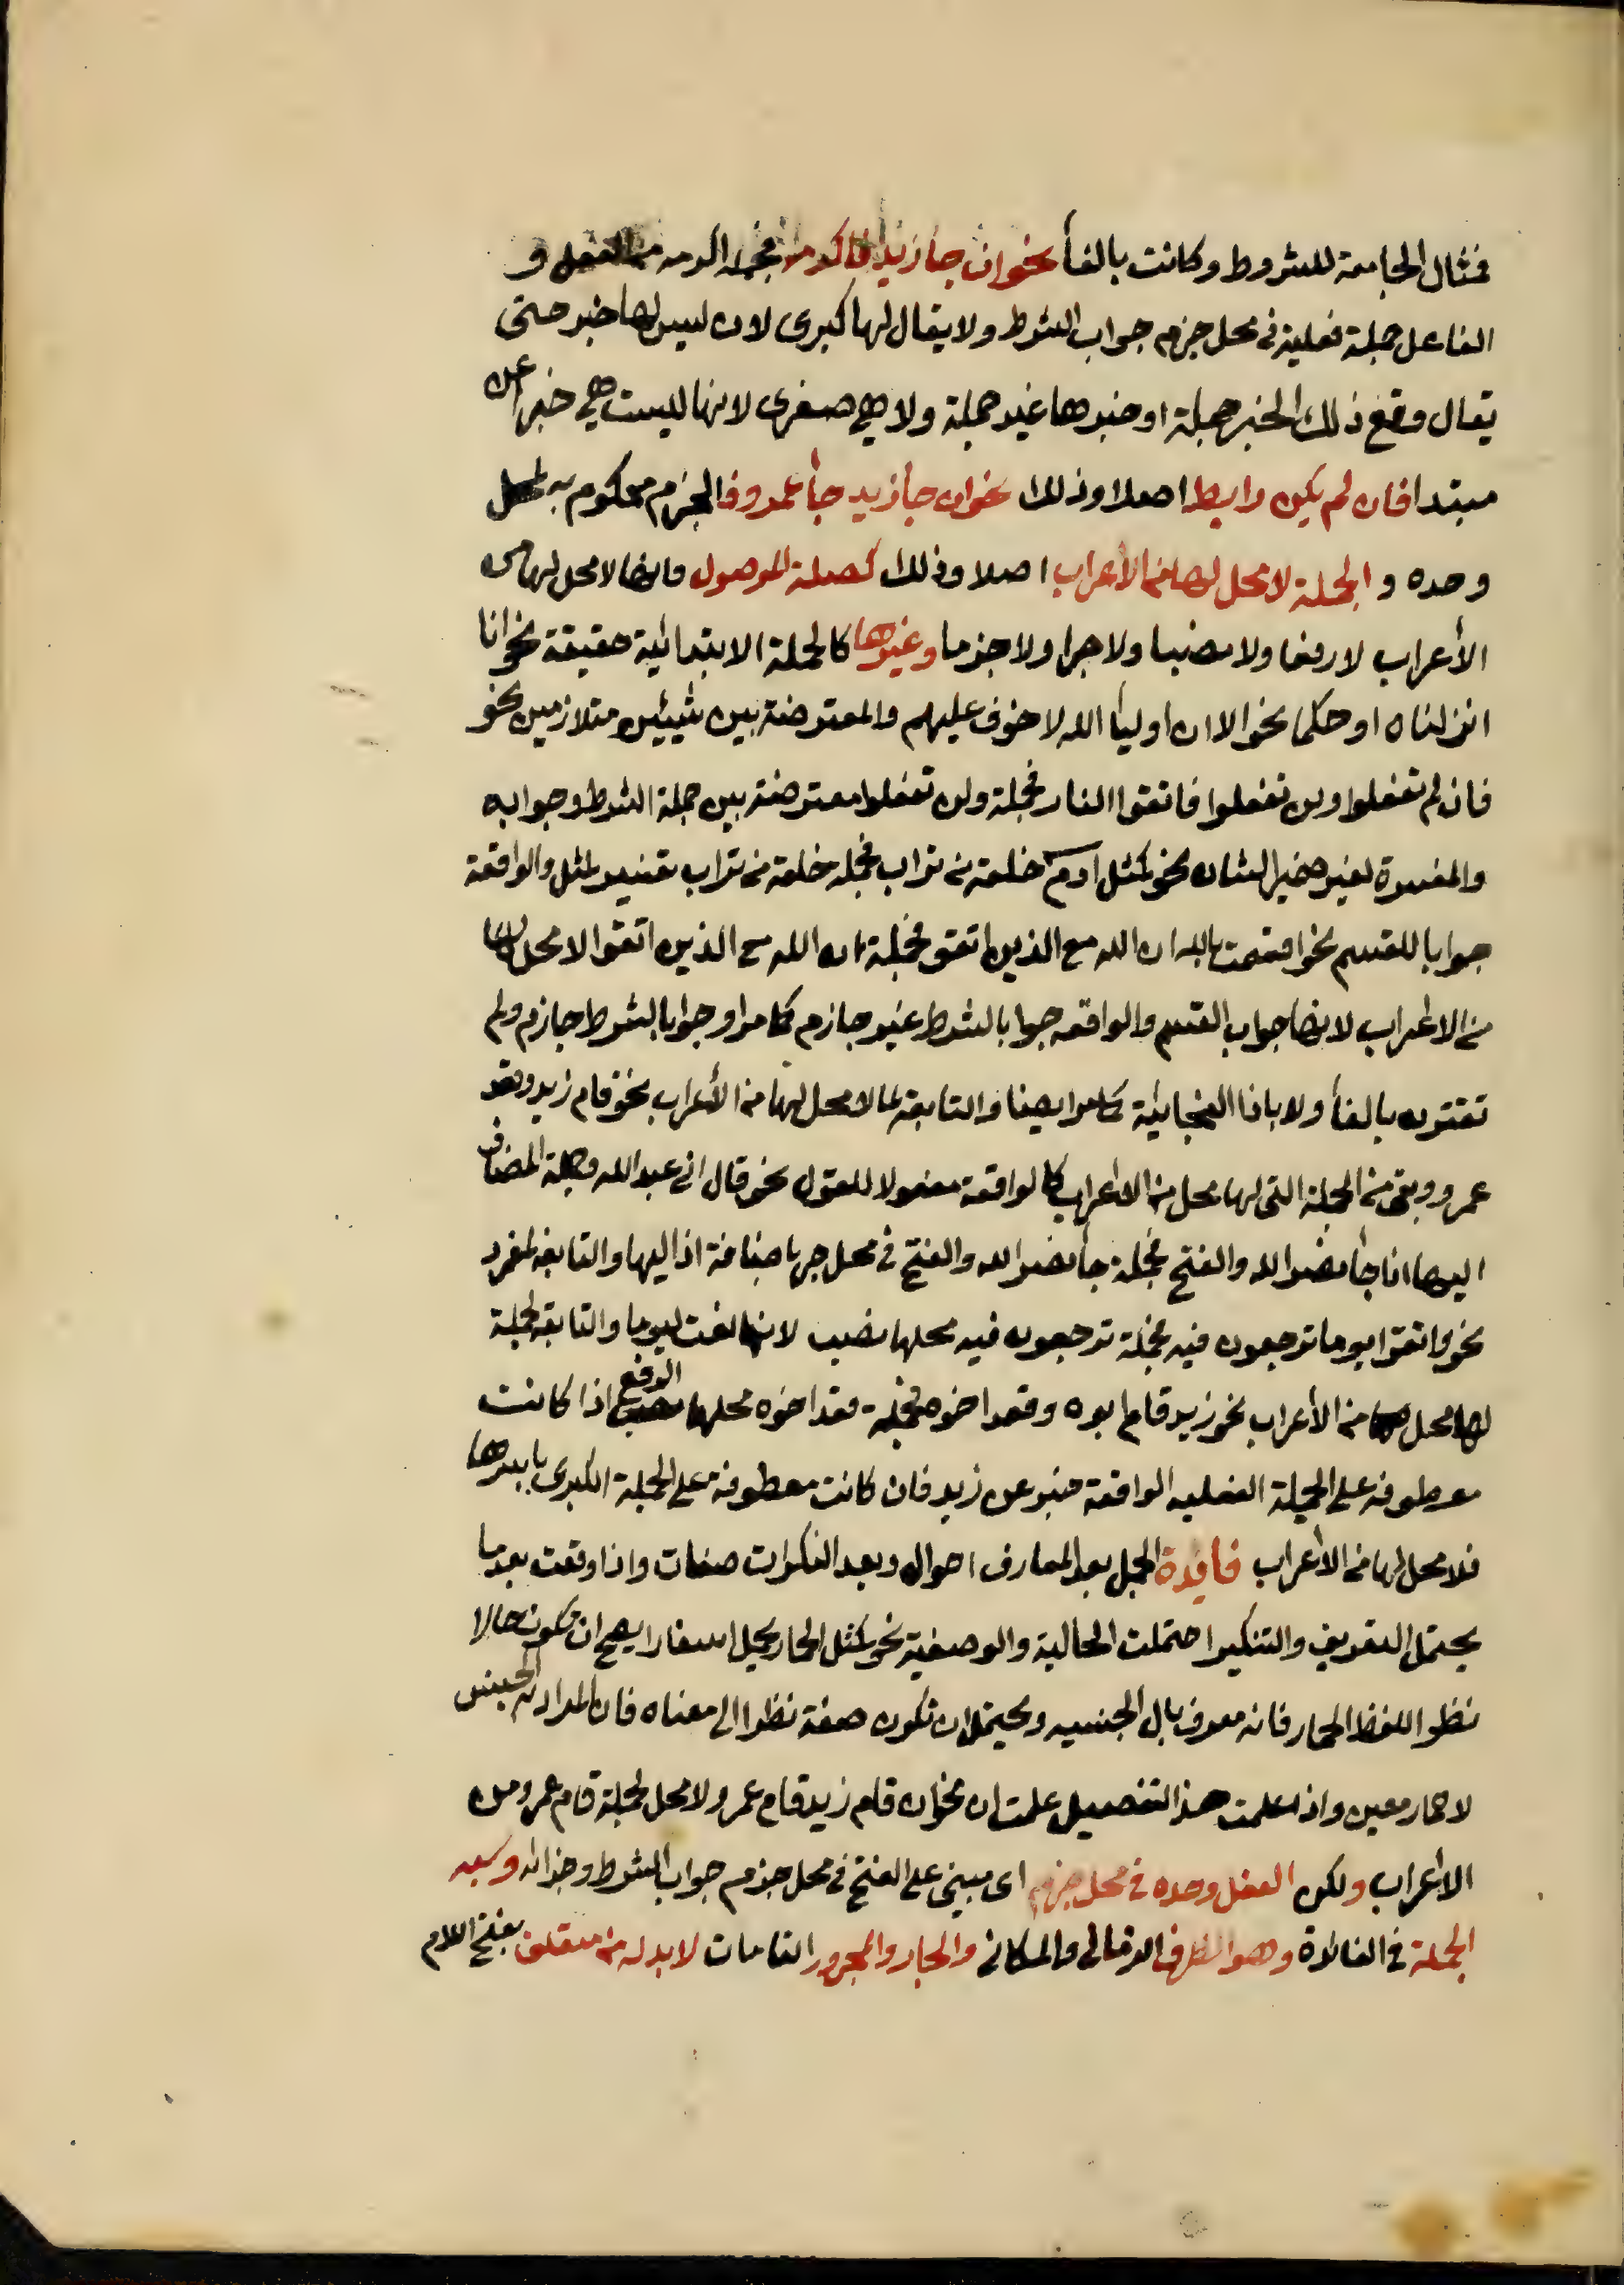 فمثال الجامعة للشروط وكانت بالفأ نحو ان جأ زيد فاكرمه فجملة اكرمه من الفعل و
الفاعل جملة فعلية في محل جزم جواب الشرط ولا يقال لها كبرى لان ليس لها خبر حتى
يقال وقع ذلك الخبر جملة او خبرها غير جملة ولا هي صغرى لانها ليست هي خبرا عن
مبتدا فان لم يكن رابط اصلا وذلك نحو ان جأ زيد جأ عمرو فالجزم محكوم به لمحل
وحده و الجملة لا محل لها من الأعراب اصلا وذلك كصلة الموصول فانها لا محل لها من
الأعراب لا رفعا ولا نصبا ولا جرا ولا جزما وغيرها كالجملة الابتدائية حقيقة نحو انا
انزلناه او حكما نحو الا ان اوليأ الله لا خوف عليهم والمعترضة بين شيئين متلازمين نحو
فان لم تفعلوا ولن تفعلوا فاتقوا النار فجملة ولن تفعلوا معترضة بين جملة الشرط وجوابه
والمفسرة لغير ضمير الشان نحو كمثل ادم خلقه من تراب فجملة خلقه من تراب تفسير لمثل والواقعة
جوابا للقسم نحو اقسمت بالله ان الله مع الذين اتقو فجملة ان الله مع الذين اتقوا لا محل لها
من الاعراب لانها جواب القسم والواقعه جوابا لشرط غير جازم كما مر او جوابا لشرط جازم ولم
تقترن بالفأ ولا باذا الفجايئة كما مر ايضا والتابعة لما لا محل لها من الأعراب نحو قام زيد وقعد
عمرو وبقى من الجملة التى لها محل من الاعراب كالواقعة مفعولا للقول نحو قال اني عبد الله وجملة المضاف
اليها اذا جأ نصر الله والفتح فجملة جأ نصر الله والفتح في محل جر باضافة اذا اليها والتابعة لمفرد
نحو واتقوا يوما ترجعون فيه فجملة ترجعون فيه محلها نصب لانها نعت ليوما والتابعة لجملة
لها محل من الأعراب نحو زيد قام ابوه وقعد اخوه فجملة قعد اخوه محلها الرفع اذا كانت
معطوفة على الجملة الفعليه الواقعة خبر عن زيد فان كانت معطوفة على الجملة الكبرى باسرها
فلا محل لها من الاعراب فايدة الجمل بعد المعارف احوال وبعد النكرات صفات واذا وقعت بعد ما
يحتمل التعريف والتنكير احتملت الحالية والوصفية نحو كمثل الحمار يحمل اسفارا يصح ان تكون حالا
نظرا للفظ الحمار فانه معرف بال الجنسيه ويحتمل ان تكون صفة نظرا الى معناه فان المراد به الجنس
لا حمار معين واذا علمت هذا التفصيل علمت ان نحو ان قام زيد قام عمرو لا محل لجملة قام عمرو من
الاعراب ولكن الفعل وحده في محل جزم اى مبنى على الفتح في محل جزم جواب الشرط وجزائه وشبه
الجملة في الفائدة وهو الظرف الزماني والمكاني والجار والمجرور التامات لا بد له من متعلق بفتح اللام